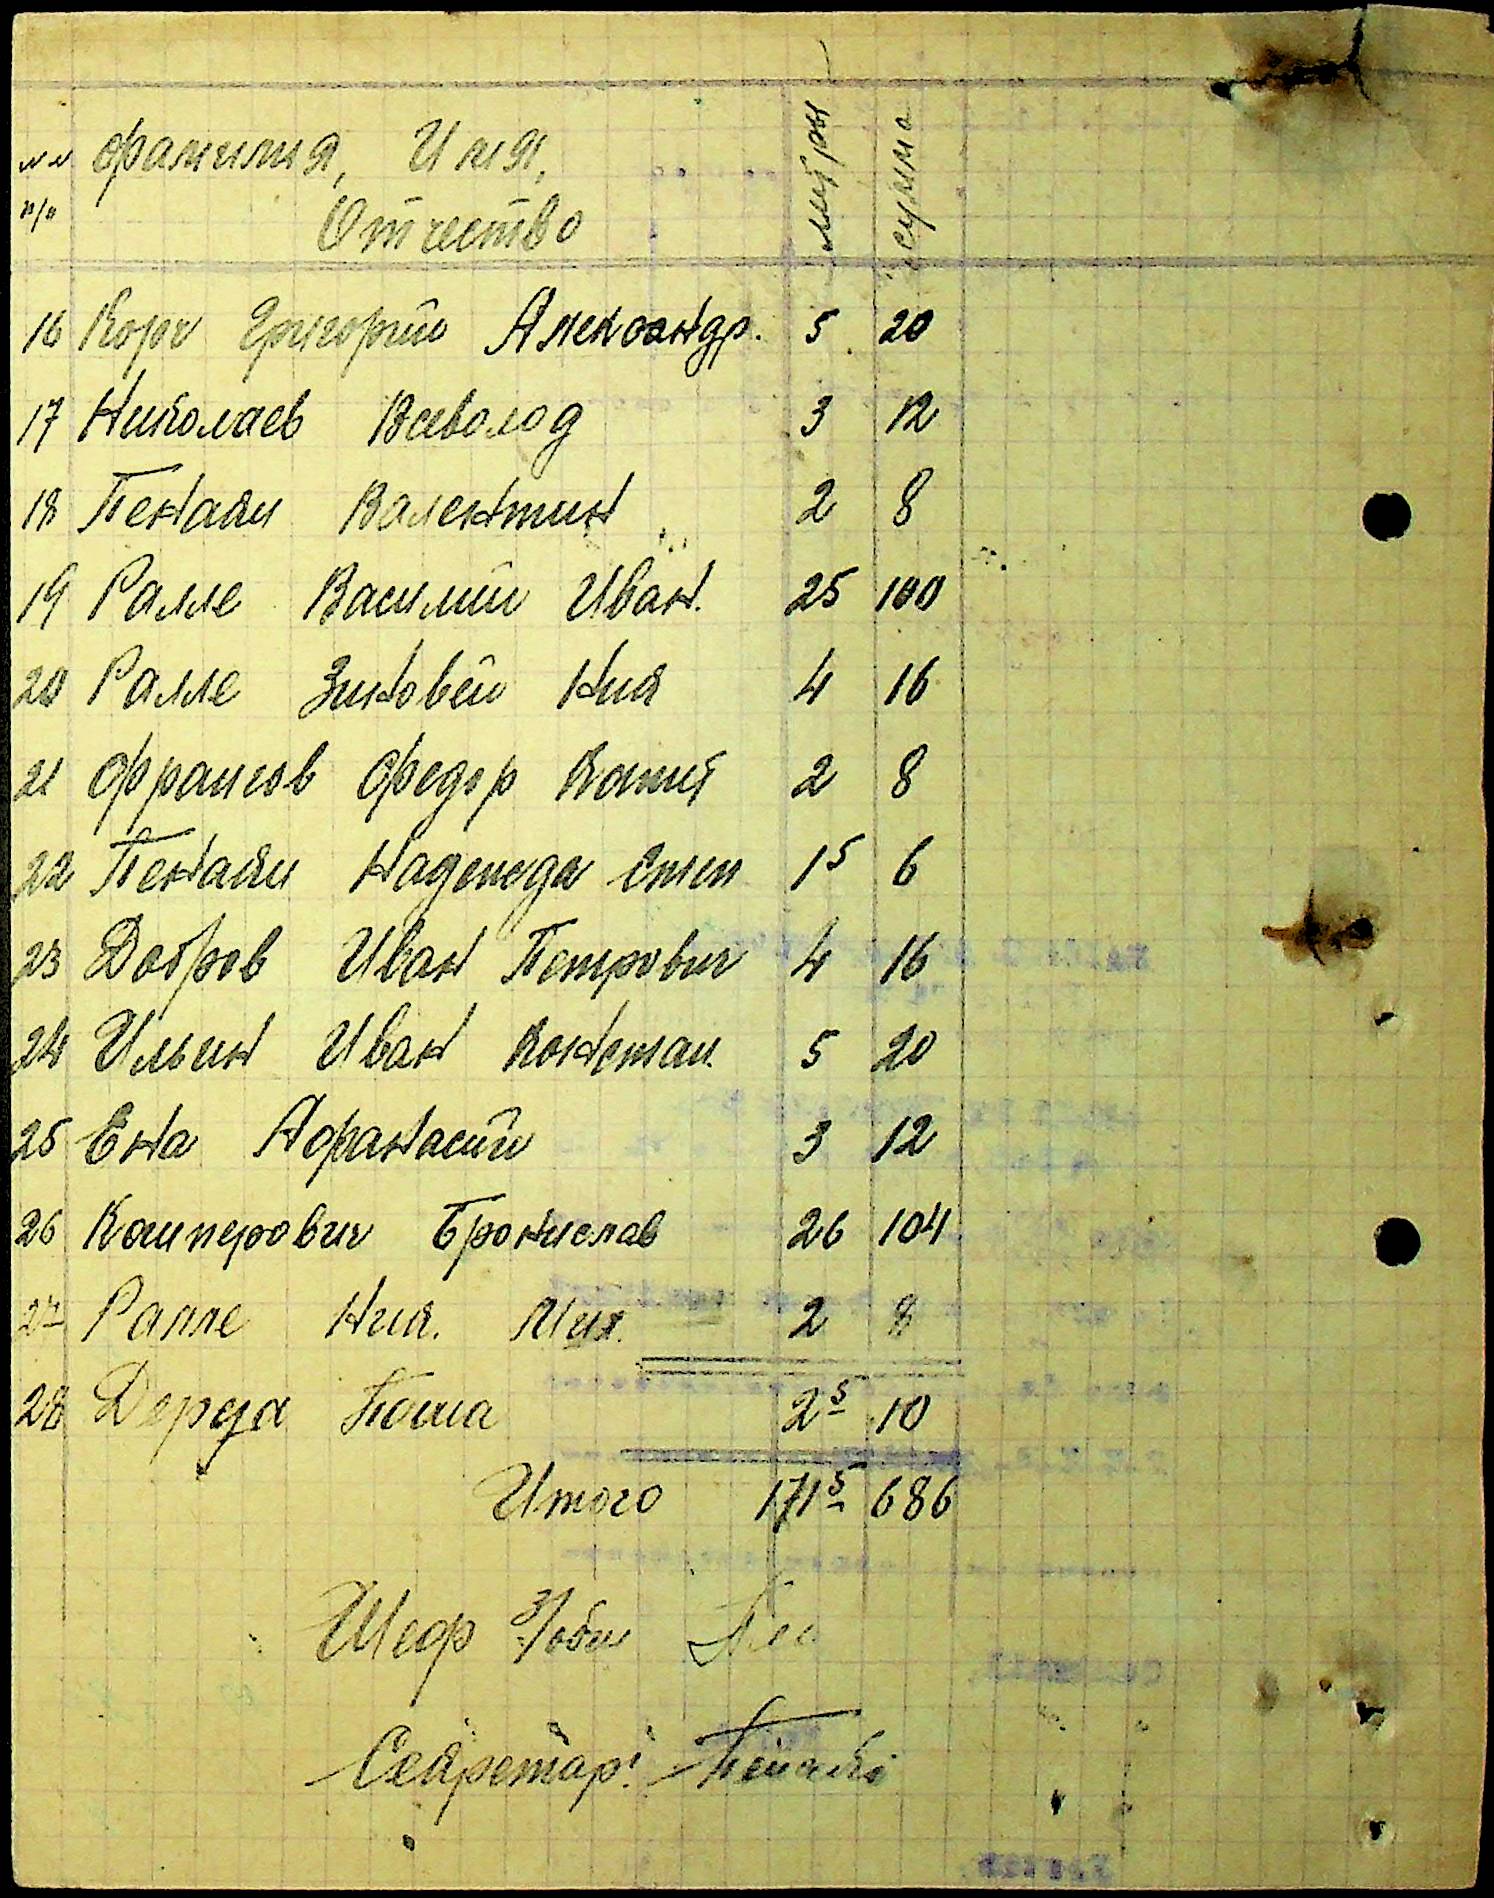 №№ Фамилия, Имя, литры сумма
п/п Отчество
16 Корч Григорий Александр. 5 20
17 Николаев Всеволод 3 12
18 Пекаль Валентин 2 8
19 Ралле Василий Иван. 25 100
20 Ралле Зиновей Ник 4 16
21 Францов Федор 2 8
22 Надежда Степ 1⁵ 6
23 Добров Иван Петрович 4 16
24 Ильин Иван Констан. 5 20
25 Ена Афанасий 3 12
26 Каперович Бронислав 26 104
27 Ралле Ник. 2 8
28 Паша 2⁵ 10
Итого 171⁵ 686
Шеф
Секретарь: